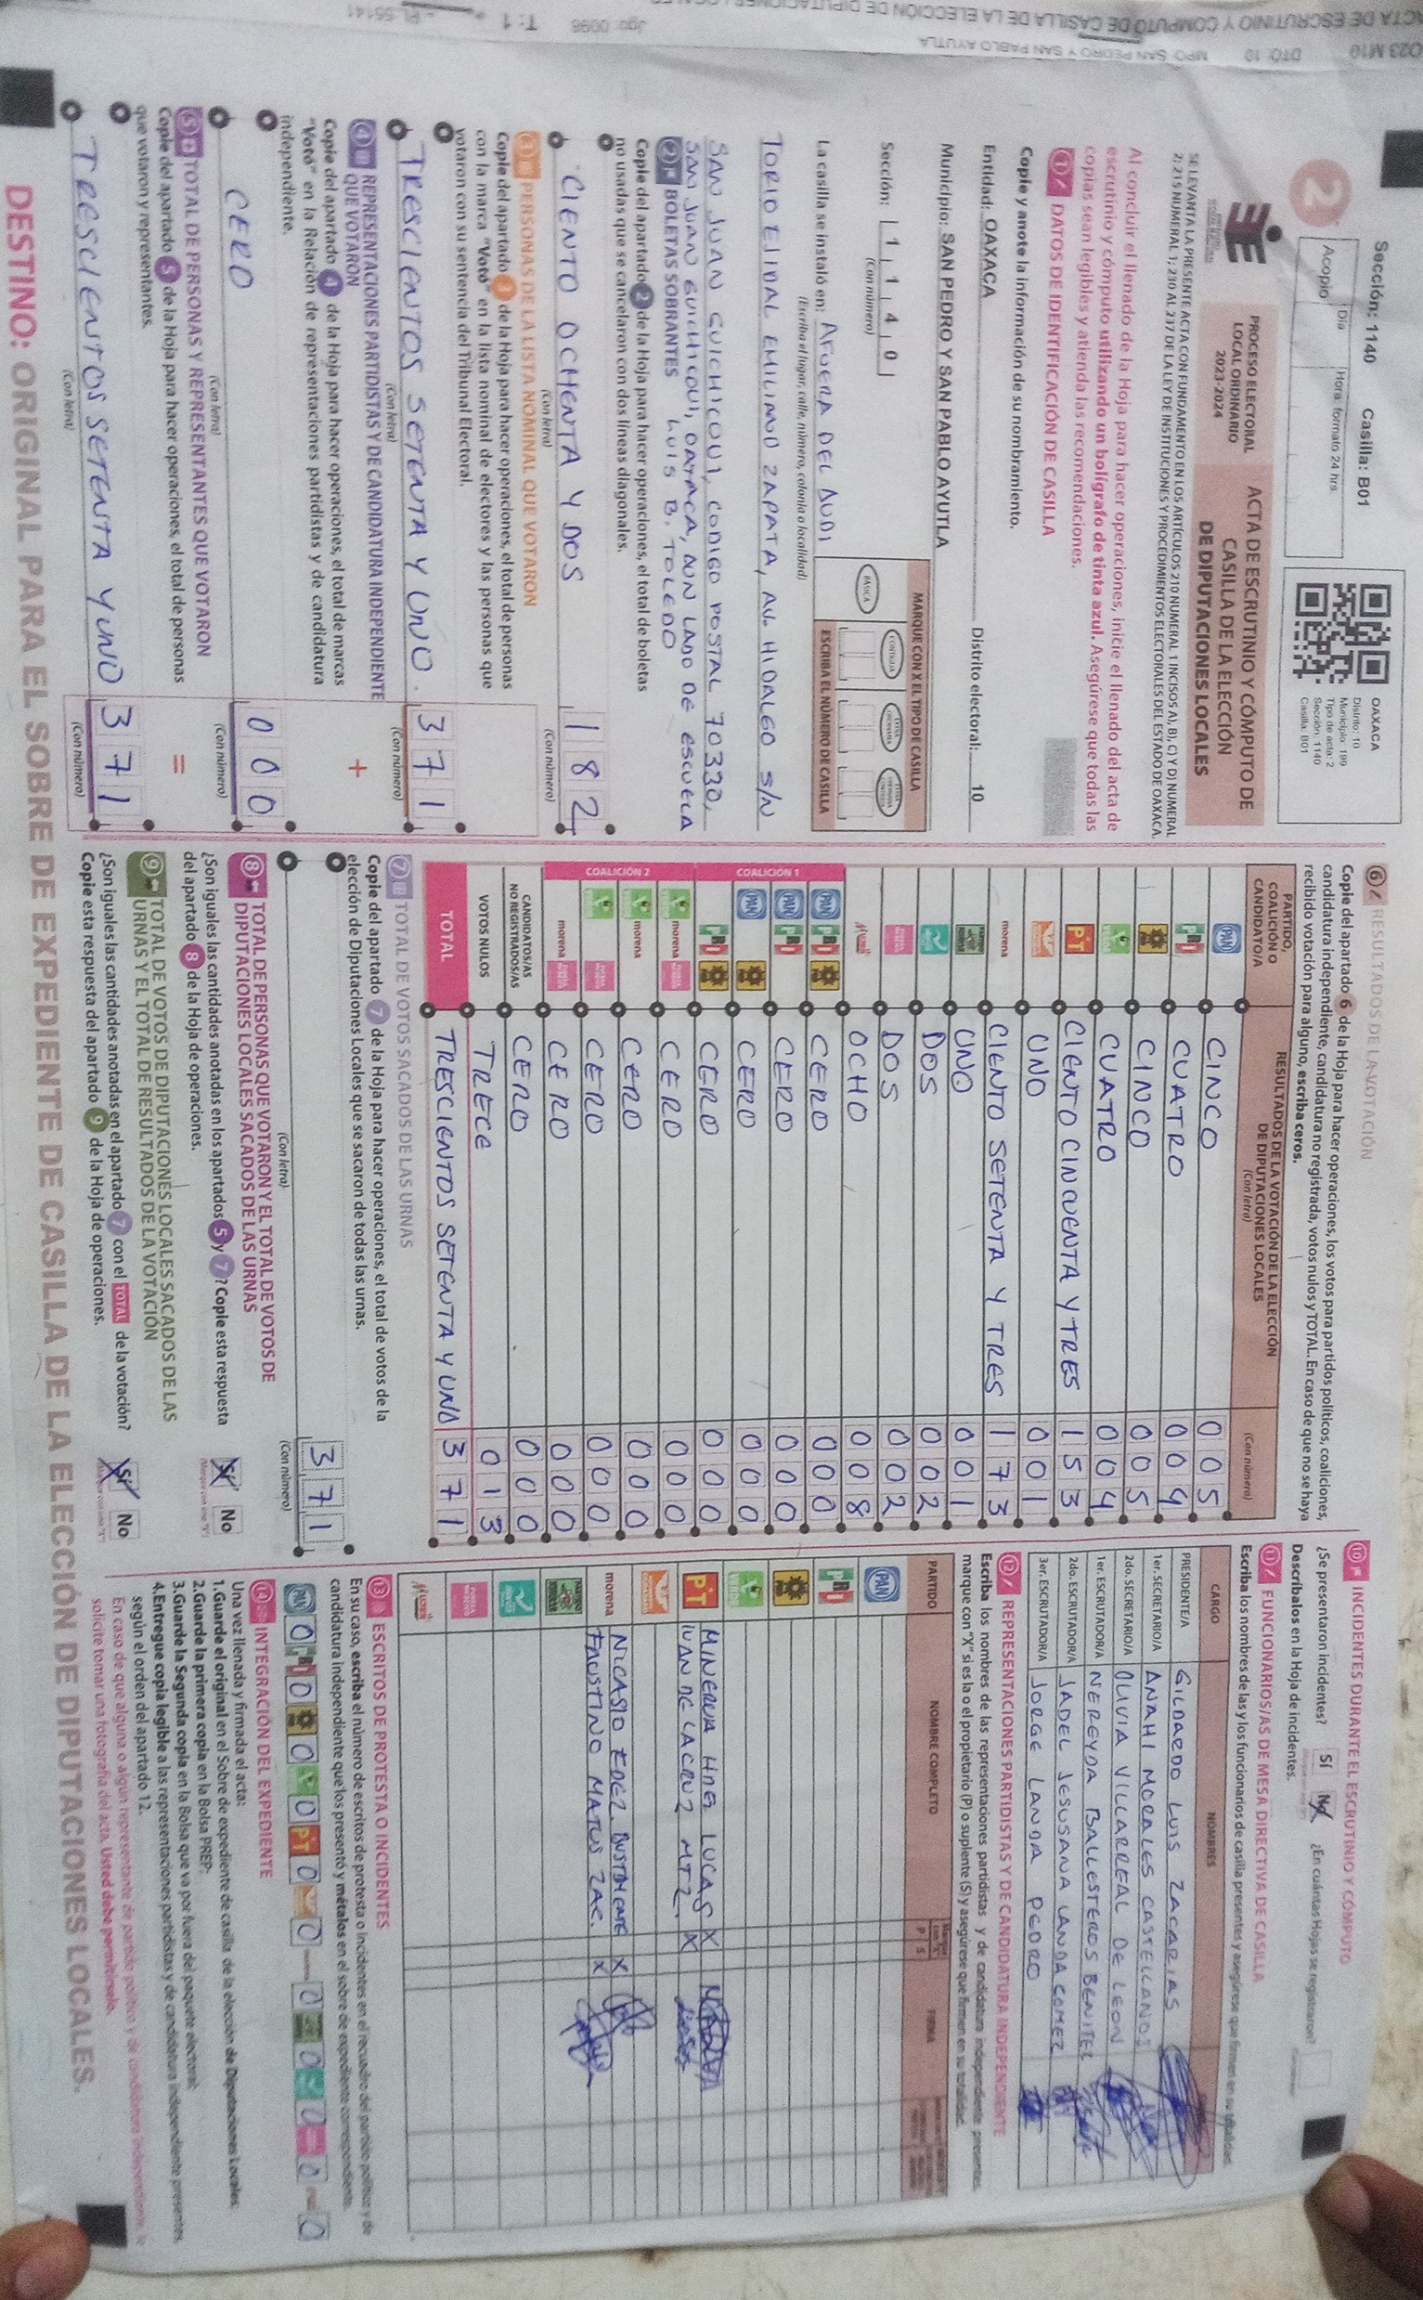 Sección: 1140 Casilla: B01
2
Día
Hora: formato 24 hrs.
Acopio
OAXACA
Distrito: 10
Municipio: 199
Tipo de acta: 2
Sección: 1140
Casilla: B01
PROCESO ELECTORAL
LOCAL ORDINARIO
2023-2024
ACTA DE ESCRUTINIO Y CÓMPUTO DE
CASILLA DE LA ELECCIÓN
DE DIPUTACIONES LOCALES
SE LEVANTA LA PRESENTE ACTA CON FUNDAMENTO EN LOS ARTÍCULOS 210 NUMERAL 1 INCISOS A), B), C) Y D) NUMERAL
2; 215 NUMERAL 1; 230 AL 237 DE LA LEY DE INSTITUCIONES Y PROCEDIMIENTOS ELECTORALES DEL ESTADO DE OAXACA.
Al concluir el llenado de la Hoja para hacer operaciones, inicie el llenado del acta de
escrutinio y cómputo utilizando un bolígrafo de tinta azul. Asegúrese que todas las
copias sean legibles y atienda las recomendaciones.
1 DATOS DE IDENTIFICACIÓN DE CASILLA
Copie y anote la información de su nombramiento.
Entidad: OAXACA Distrito electoral: 10
Municipio: SAN PEDRO Y SAN PABLO AYUTLA
Sección: 1 1 4 0
(Con número)
MARQUE CON X EL TIPO DE CASILLA
BÁSICA
ESCRIBA EL NÚMERO DE CASILLA
La casilla se instaló en: AFUERA DEL AUDI
(Escriba el lugar, calle, número, colonia o localidad)
TORIO EJIDAL EMILIANO ZAPATA, AV. HIDALGO S/N
SAN JUAN GUICHICOVI, CODIGO POSTAL 70330,
SAN JUAN GUICHICOVI, OAXACA, AUN LADO DE ESCUELA
2 BOLETAS SOBRANTES LUIS B. TOLEDO
Copie del apartado 2 de la Hoja para hacer operaciones, el total de boletas
no usadas que se cancelaron con dos líneas diagonales.
CIENTO OCHENTA Y DOS 1 8 2
(Con letra) (Con número)
3 PERSONAS DE LA LISTA NOMINAL QUE VOTARON
Copie del apartado 3 de la Hoja para hacer operaciones, el total de personas
con la marca "Votó" en la lista nominal de electores y las personas que
votaron con su sentencia del Tribunal Electoral.
TRESCIENTOS SETENTA Y UNO. 3 7 1
(Con letra) (Con número)
4 REPRESENTACIONES PARTIDISTAS Y DE CANDIDATURA INDEPENDIENTE
QUE VOTARON
Copie del apartado 4 de la Hoja para hacer operaciones, el total de marcas
"Votó" en la Relación de representaciones partidistas y de candidatura
independiente.
+
CERO 0 0 0
(Con letra) (Con número)
5 TOTAL DE PERSONAS Y REPRESENTANTES QUE VOTARON
Copie del apartado 5 de la Hoja para hacer operaciones, el total de personas
que votaron y representantes.
=
TRESCIENTOS SETENTA Y UNO 3 7 1
(Con letra) (Con número)
6 RESULTADOS DE LA VOTACIÓN
Copie del apartado 6 de la Hoja para hacer operaciones, los votos para partidos políticos, coaliciones,
candidatura independiente, candidatura no registrada, votos nulos y TOTAL. En caso de que no se haya
recibido votación para alguno, escriba ceros.
PARTIDO,
COALICIÓN O
CANDIDATO/A
RESULTADOS DE LA VOTACIÓN DE LA ELECCIÓN
DE DIPUTACIONES LOCALES
(Con letra) (Con número)
PAN CINCO 0 0 5
PRI CUATRO 0 0 4
CINCO 0 0 5
CUATRO 0 0 4
PT CIENTO CINCUENTA Y TRES 1 5 3
UNO 0 0 1
morena CIENTO SETENTA Y TRES 1 7 3
UNO 0 0 1
DOS 0 0 2
DOS 0 0 2
OCHO 0 0 8
COALICIÓN 1
PAN PRI CERO 0 0 0
PAN PRI CERO 0 0 0
PAN CERO 0 0 0
PRI CERO 0 0 0
COALICIÓN 2
morena CERO 0 0 0
morena CERO 0 0 0
CERO 0 0 0
morena CERO 0 0 0
CANDIDATOS/AS
NO REGISTRADOS/AS CERO 0 0 0
VOTOS NULOS TRECE 0 1 3
TOTAL TRESCIENTOS SETENTA Y UNO 3 7 1
7 TOTAL DE VOTOS SACADOS DE LAS URNAS
Copie del apartado 7 de la Hoja para hacer operaciones, el total de votos de la
elección de Diputaciones Locales que se sacaron de todas las urnas.
3 7 1
(Con letra) (Con número)
8 TOTAL DE PERSONAS QUE VOTARON Y EL TOTAL DE VOTOS DE
DIPUTACIONES LOCALES SACADOS DE LAS URNAS
¿Son iguales las cantidades anotadas en los apartados 5 y 7? Copie esta respuesta
del apartado 8 de la Hoja de operaciones.
Sí No
9 TOTAL DE VOTOS DE DIPUTACIONES LOCALES SACADOS DE LAS
URNAS Y EL TOTAL DE RESULTADOS DE LA VOTACIÓN
¿Son iguales las cantidades anotadas en el apartado 7 con el TOTAL de la votación?
Copie esta respuesta del apartado 9 de la Hoja de operaciones.
Sí No
10 INCIDENTES DURANTE EL ESCRUTINIO Y CÓMPUTO
¿Se presentaron incidentes? Sí No ¿En cuántas Hojas se registraron?
Descríbalos en la Hoja de incidentes.
11 FUNCIONARIOS/AS DE MESA DIRECTIVA DE CASILLA
Escriba los nombres de las y los funcionarios de casilla presentes y asegúrese que firmen en su totalidad.
CARGO NOMBRES
PRESIDENTE/A GILDARDO LUIS ZACARIAS
1er. SECRETARIO/A ANAHI MORALES CASTELLANOS
2do. SECRETARIO/A OLIVIA VILLARREAL DE LEON
1er. ESCRUTADOR/A NEREYDA BALLESTEROS BENITEZ
2do. ESCRUTADOR/A JADEL JESUSANA LANDA GOMEZ
3er. ESCRUTADOR/A JORGE LANDA PEDRO
12 REPRESENTACIONES PARTIDISTAS Y DE CANDIDATURA INDEPENDIENTE
Escriba los nombres de las representaciones partidistas y de candidatura independiente presentes,
marque con "X" si es la o el propietario (P) o suplente (S) y asegúrese que firmen en su totalidad.
PARTIDO NOMBRE COMPLETO P S FIRMA
PAN
PRI
PT MINERVA HDG LUCAS X
IVAN DE LA CRUZ MTZ. X
morena NICASIO X
FAUSTINO MATUS ZAC. X
13 ESCRITOS DE PROTESTA O INCIDENTES
En su caso, escriba el número de escritos de protesta o incidentes en el recuadro del partido político y de
candidatura independiente que los presentó y métalos en el sobre de expediente correspondiente.
PAN 0 PRI 0 0 0 PT 0 0 0 0 0 0 0
14 INTEGRACIÓN DEL EXPEDIENTE
Una vez llenada y firmada el acta:
1.Guarde el original en el Sobre de expediente de casilla de la elección de Diputaciones Locales.
2.Guarde la primera copia en la Bolsa PREP.
3.Guarde la Segunda copia en la Bolsa que va por fuera del paquete electoral.
4.Entregue copia legible a las representaciones partidistas y de candidatura independiente presentes,
según el orden del apartado 12.
En caso de que alguna o algún representante de partido político y de candidatura independiente, le
solicite tomar una fotografía del acta, Usted debe permitírselo.
DESTINO: ORIGINAL PARA EL SOBRE DE EXPEDIENTE DE CASILLA DE LA ELECCIÓN DE DIPUTACIONES LOCALES.